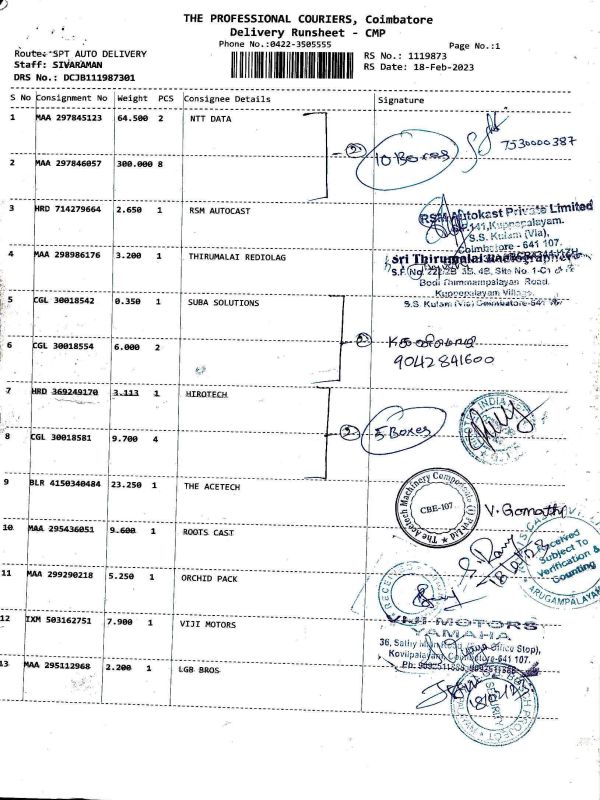 THE PROFESSIONAL COURIERS, Coimbatore
Delivery Runsheet - CMP
Phone No.:0422-3505555
Page No.:1
Route: SPT AUTO DELIVERY
Staff: SIVARAMAN
DRS No.: DCJB111987301
RS No.: 1119873
RS Date: 18-Feb-2023
S No Consignment No Weight PCS Consignee Details Signature
1 MAA 297845123 64.500 2 NTT DATA
2 10 Boxes 7530000387
2 MAA 297846057 300.000 8
3 HRD 714279664 2.650 1 RSM AUTOCAST
RSM Autokast Private Limited
141, Kuppepalayam.
S.S. Kulam (Via),
Coimbatore - 641 107.
4 MAA 298986176 3.200 1 THIRUMALAI REDIOLAG
Sri Thirumalai
Bodi Thimmampalayan Road,
Kupperalayam Village,
S.S. Kulam (Via) Coimbatore-641
5 CGL 30018542 0.350 1 SUBA SOLUTIONS
2
9042841600
6 CGL 30018554 6.000 2
7 HRD 369249170 3.113 1 HIROTECH
2 5 Boxes
8 CGL 30018581 9.700 4
9 BLR 4150340484 23.250 1 THE ACETECH
The Acetech Machinery Components (I) Pvt Ltd
CBE-107
V. Gomathy
10 MAA 295436051 9.600 1 ROOTS CAST
Received
Subject To
Verification &
Counting
ARUGAMPALAYAM
11 MAA 299290218 5.250 1 ORCHID PACK
RECEIVED
12 IXM 503162751 7.900 1 VIJI MOTORS
VIJI MOTORS
YAMAHA
36, Sathy Main Road Office Stop),
Kovilpalayam, Coimbatore-641 107.
13 MAA 295112968 2.200 1 LGB BROS
SECURITY
18/02/23